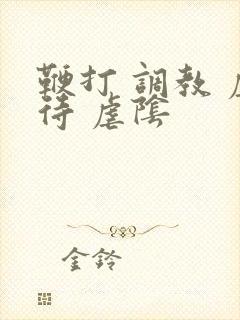 鞭打 調教 虐
待 虐陰
金鈴